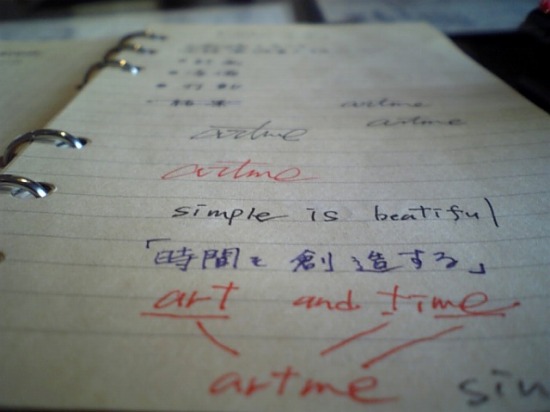 artme
artme
artme
artme
simple is beatiful
「時間を創造する」
art and time
artme